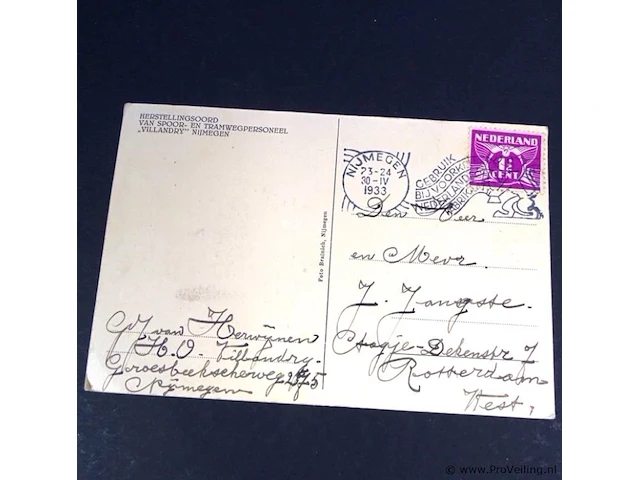 HERSTELLINGSOORD
VAN SPOOR- EN TRAMWEGPERSONEEL
„VILLANDRY" NIJMEGEN
NIJMEGEN
23-24
30-IV
1933
GEBRUIK
BIJ VOORK
NEDERLAND
NEDERLAND
1½
CENT
Den Heer
en Mevr.
J. Jongste.
Dekenstr 7
Rotterdam
West,
Foto Bruinich, Nijmegen
van Herwijnen
H.O. Villandry.
Groesbeekscheweg 275
Nijmegen
© www.ProVeiling.nl